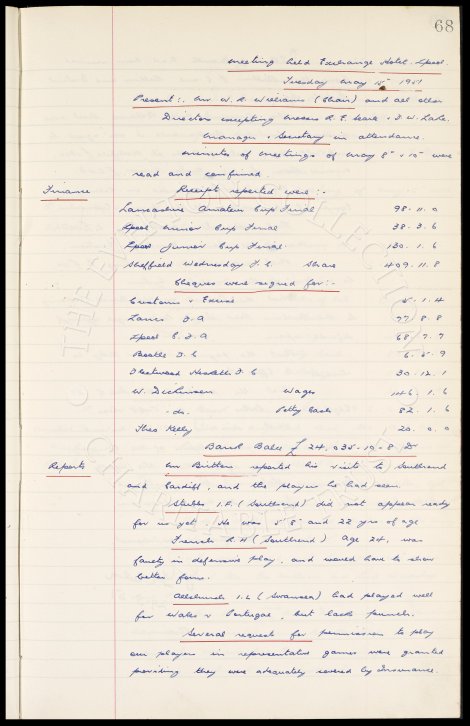 68
Meeting held Exchange Hotel L'pool.
Tuesday May 15" 1951
Present:- Mr W. R. Williams (Chair) and all other
Directors excepting Messrs R. E. Searle & T. W. Lake.
Manager & Secretary in attendance.
Minutes of meetings of May 8" & 10" were
read and confirmed.
Finance
Receipts reported were:-
Lancashire Amateur Cup Final 98. 11. 0
L'pool Minor Cup Final 38. 3. 6
L'pool Junior Cup Final 130. 1. 6
Sheffield Wednesday F.C. Share 409. 11. 8
Cheques were signed for:-
Customs & Excise 5. 1. 4
Lancs F.A 77. 8. 8
L'pool C. F.A 68. 7. 7
Bootle F.C 6. 5. 9
Fleetwood Hesketh F.C 30. 12. 1
W. Dickinson Wages 146. 1. 6
-do- Petty Cash 82. 1. 6
Theo Kelly 20. 0. 0
Bank Balce £ 24,035-19-8 Dr
Reports
Mr Britton reported his visits to Southend
and Cardiff, and the players he had seen.
Stubbs I.F. (Southend) did not appear ready
for us yet. He was 5' 8" and 22 yrs of age
French R.H (Southend) age 24, was
faulty in defensive play, and would have to show
better form.
Allchurch I.L (Swansea) had played well
for Wales v Portugal, but lacks punch.
Several request for permission to play
our players in representative games were granted
providing they were adequately covered by Insurance.
THE EVERTON COLLECTION